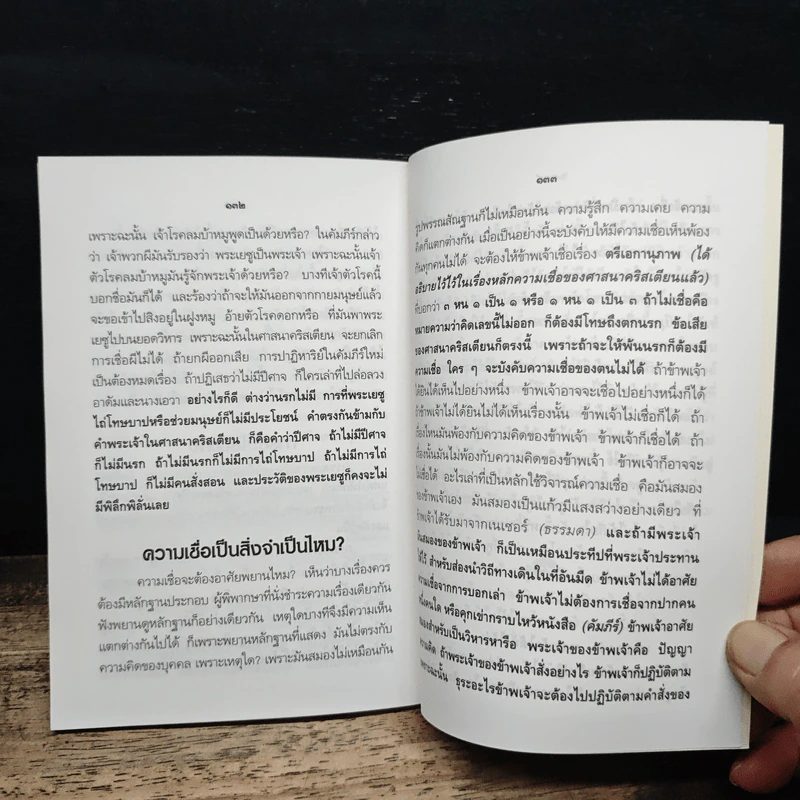 ๑๓๒
เพราะฉะนั้น เจ้าโรคลมบ้าหมูพูดเป็นด้วยหรือ? ในคัมภีร์กล่าว
ว่า เจ้าพวกผีมันรับรองว่า พระเยซูเป็นพระเจ้า เพราะฉะนั้นเจ้า
ตัวโรคลมบ้าหมูมันรู้จักพระเจ้าด้วยหรือ? บางทีเจ้าตัวโรคนี้
บอกชื่อมันก็ได้ และร้องว่าถ้าจะให้มันออกจากกายมนุษย์แล้ว
จะขอเข้าไปสิงอยู่ในฝูงหมู อ้ายตัวโรคดอกหรือ ที่มันพาพระ
เยซูไปบนยอดวิหาร เพราะฉะนั้นในศาสนาคริสเตียน จะยกเลิก
การเชื่อผีไม่ได้ ถ้ายกผีออกเสีย การปาฏิหาริย์ในคัมภีร์ใหม่
เป็นต้องหมดเรื่อง ถ้าปฏิเสธว่าไม่มีปีศาจ ก็ใครเล่าที่ไปล่อลวง
อาดัมและนางเอวา อย่างไรก็ดี ต่างว่านรกไม่มี การที่พระเยซู
ไถ่โทษบาปหรือช่วยมนุษย์ก็ไม่มีประโยชน์ คำตรงกันข้ามกับ
คำพระเจ้าในศาสนาคริสเตียน ก็คือคำว่าปีศาจ ถ้าไม่มีปีศาจ
ก็ไม่มีนรก ถ้าไม่มีนรกก็ไม่มีการไถ่โทษบาป ถ้าไม่มีการไถ่
โทษบาป ก็ไม่มีคนสั่งสอน และประวัติของพระเยซูก็คงจะไม่
มีพิลึกพิลั่นเลย
ความเชื่อเป็นสิ่งจำเป็นไหม?
ความเชื่อจะต้องอาศัยพยานไหม? เห็นว่าบางเรื่องควร
ต้องมีหลักฐานประกอบ ผู้พิพากษาที่นั่งชำระความเรื่องเดียวกัน
ฟังพยานดูหลักฐานก็อย่างเดียวกัน เหตุใดบางทีจึงมีความเห็น
แตกต่างกันไปได้ ก็เพราะพยานหลักฐานที่แสดง มันไม่ตรงกับ
ความคิดของบุคคล เพราะเหตุใด? เพราะมันสมองไม่เหมือนกัน
๑๓๓
รูปพรรณสัณฐานก็ไม่เหมือนกัน ความรู้สึก ความเคย ความ
คิดก็แตกต่างกัน เมื่อเป็นอย่างนี้จะบังคับให้มีความเชื่อเห็นพ้อง
กันทุกคนไม่ได้ จะต้องให้ข้าพเจ้าเชื่อเรื่อง ตรีเอกานุภาพ (ได้
อธิบายไว้ไว้ในเรื่องหลักความเชื่อของศาสนาคริสเตียนแล้ว)
ที่บอกว่า ๓ หน ๑ เป็น ๑ หรือ ๑ หน ๑ เป็น ๓ ถ้าไม่เชื่อคือ
หมายความว่าคิดเลขนี้ไม่ออก ก็ต้องมีโทษถึงตกนรก ข้อเสีย
ของศาสนาคริสเตียนก็ตรงนี้ เพราะถ้าจะให้พ้นนรกก็ต้องมี
ความเชื่อ ใคร ๆ จะบังคับความเชื่อของตนไม่ได้ ถ้าข้าพเจ้า
ได้ยินได้เห็นไปอย่างหนึ่ง ข้าพเจ้าอาจจะเชื่อไปอย่างหนึ่งก็ได้
ถ้าข้าพเจ้าไม่ได้ยินไม่ได้เห็นเรื่องนั้น ข้าพเจ้าไม่เชื่อก็ได้ ถ้า
เรื่องไหนมันพ้องกับความคิดของข้าพเจ้า ข้าพเจ้าก็เชื่อได้ ถ้า
เรื่องนั้นมันไม่พ้องกับความคิดของข้าพเจ้า ข้าพเจ้าก็อาจจะ
ไม่เชื่อได้ อะไรเล่าที่เป็นหลักใช้วิจารณ์ความเชื่อ คือมันสมอง
ของข้าพเจ้าเอง มันสมองเป็นแก้วมีแสงสว่างอย่างเดียว ที่
ข้าพเจ้าได้รับมาจากเนเชอร์ (ธรรมดา) และถ้ามีพระเจ้า
มันสมองของข้าพเจ้า ก็เป็นเหมือนประทีปที่พระเจ้าประทาน
ให้ไว้ สำหรับส่องนำวิถีทางเดินในที่อันมืด ข้าพเจ้าไม่ได้อาศัย
ความเชื่อจากการบอกเล่า ข้าพเจ้าไม่ต้องการเชื่อจากปากคน
หนึ่งคนใด หรือคุกเข่ากราบไหว้หนังสือ (คัมภีร์) ข้าพเจ้าอาศัย
สมองสำหรับเป็นวิหารหารือ พระเจ้าของข้าพเจ้าคือ ปัญญา
ความคิด ถ้าพระเจ้าของข้าพเจ้าสั่งอย่างไร ข้าพเจ้าก็ปฏิบัติตาม
เพราะฉะนั้น ธุระอะไรข้าพเจ้าจะต้องไปปฏิบัติตามคำสั่งของ